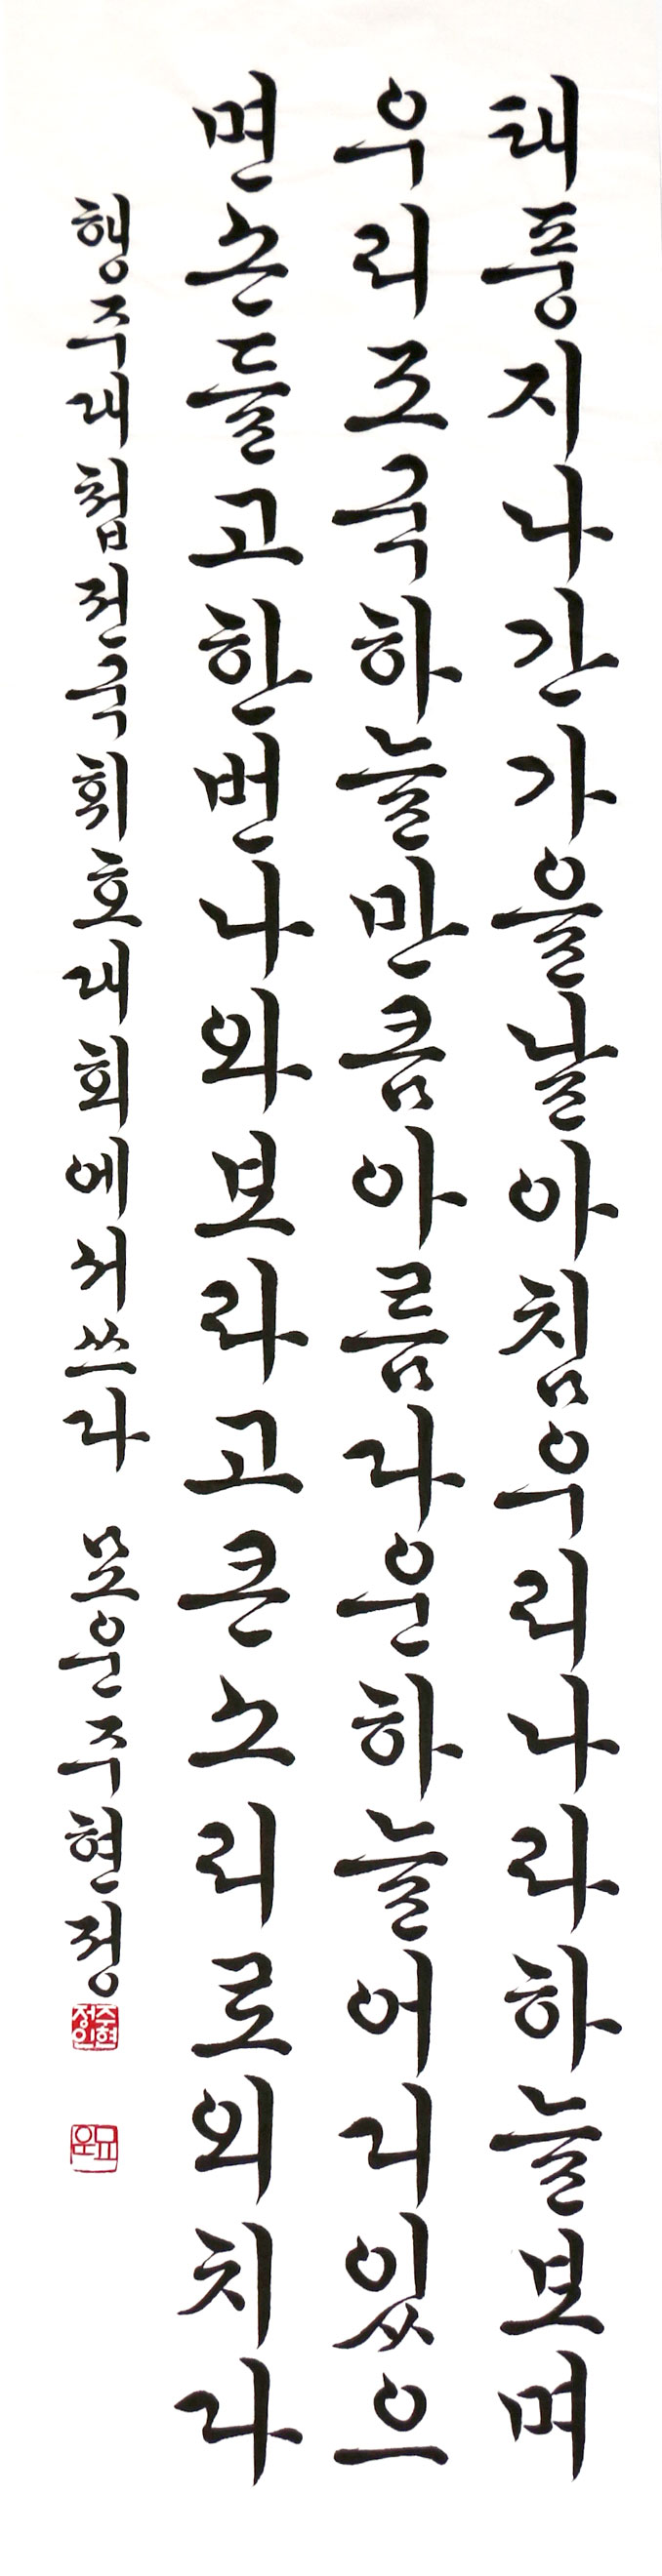 태풍지나간가을날아침우리나라하늘보며
우리조국하늘만큼아름다운하늘어디있으
면손들고한번나와보라고큰소리로외치다
행주대첩전국휘호대회에서쓰다 묘운주현정
주현정인
묘운